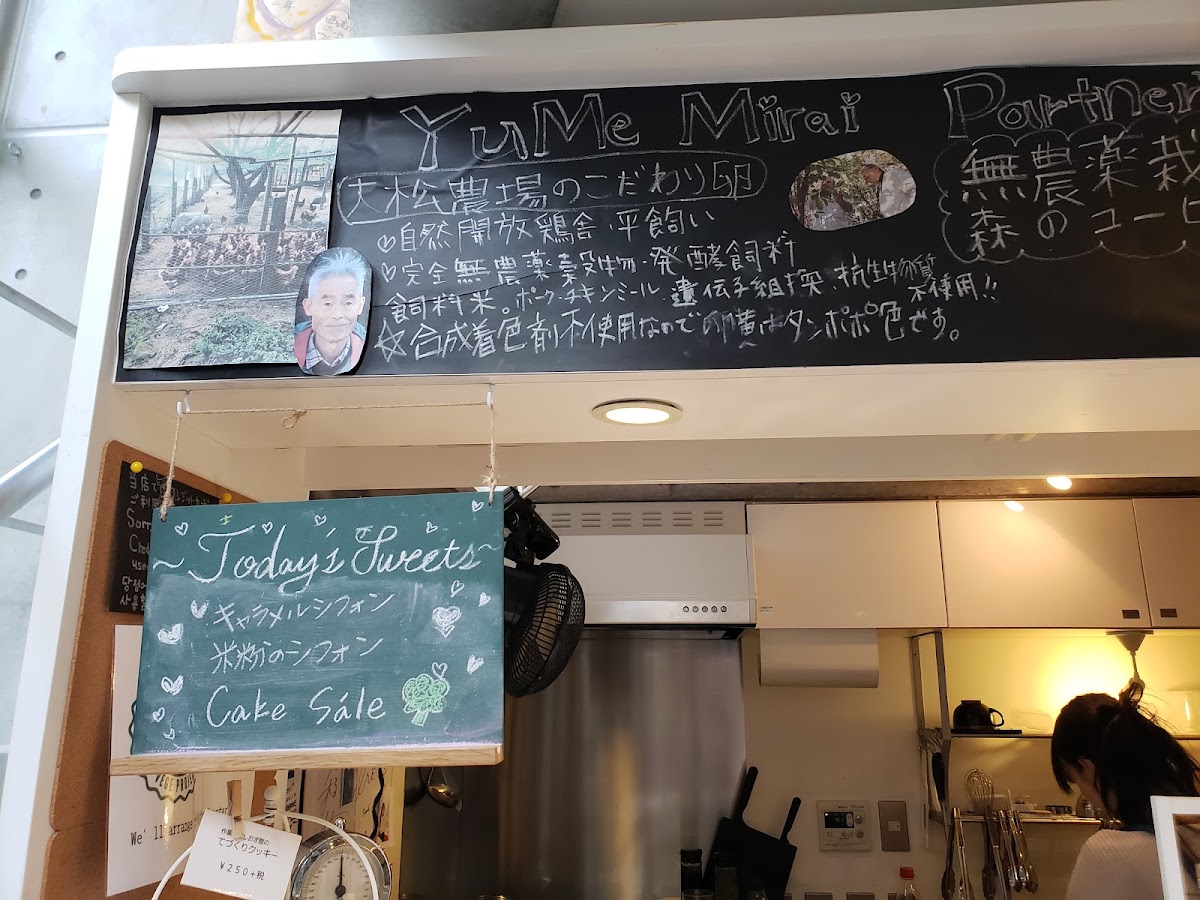 YuMe Mirai Partner
大松農場のこだわり卵
♡自然開放鶏舎・平飼い
♡完全無農薬穀物・発酵飼料
飼料米。ポーク・チキンミール、遺伝子組換、抗生物質
不使用!!
☆合成着色剤不使用なので卵黄はタンポポ色です。
無農薬栽
森のユーヒ
~Today's Sweets~
キャラメルシフォン
米粉のシフォン
Cake Sále
当店で
ご利用
Sorr
Cred
use
We'll arrange
てづくりクッキー
¥250+税